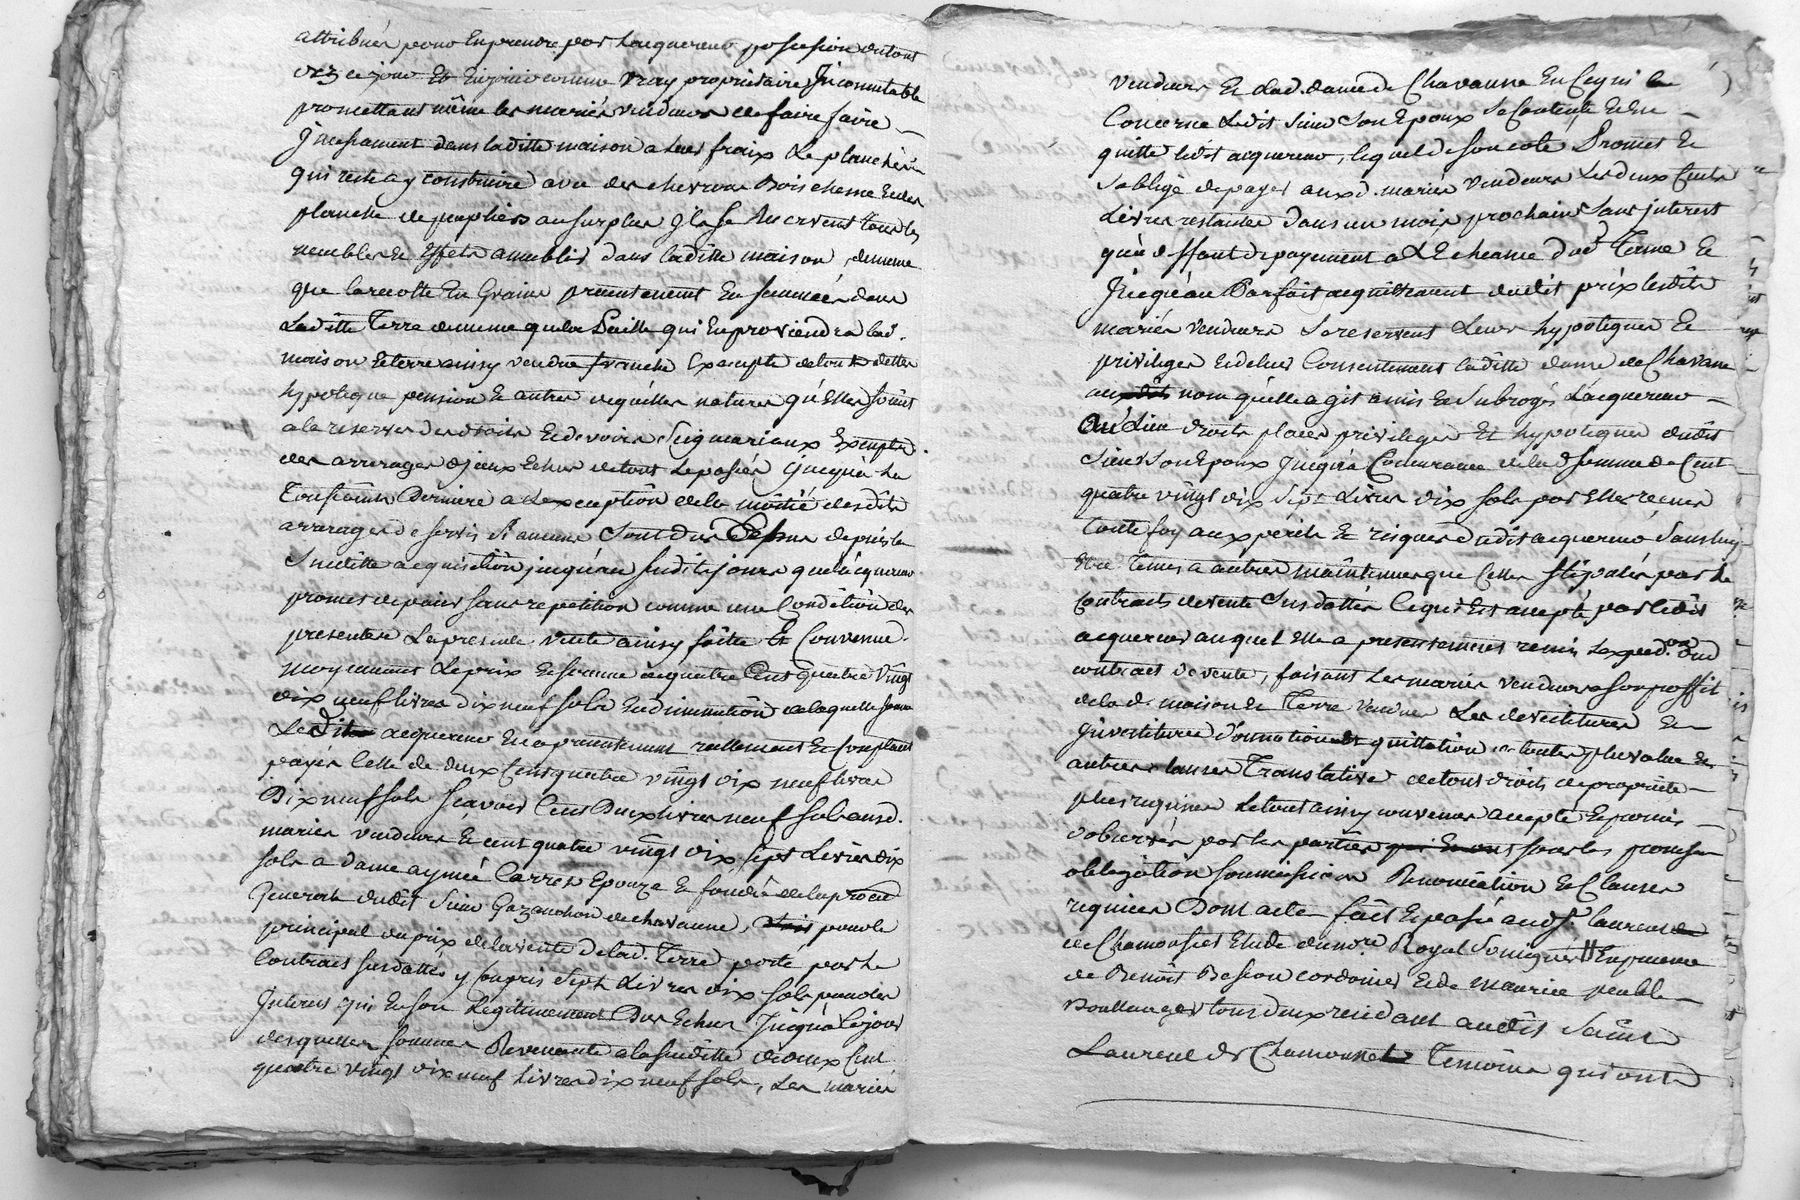 attribués pour en prendre par lacquereur possession de tout
dez ce jour Et En jouir comme vray proprietaire Jncomutable
promettant même les mariés vendeurs de faire faire
Jncessament dans laditte maison a leurs fraix Le plancher
qui reste a y construire avec des chevrons Bois chesne Et des
planche de peupliers au surplus Jls se Reservent tous les
meubles Et Effets ameublés dans laditte maison, de meme
que la recolte En Graine presentement En semencée dans
Laditte Terre de meme que la Paille qui En proviendra lad.
maison Et terre ainsy vendue franche Exempte de toute dettes
hypoteque pension Et autres de quelles natures qu'Elles soient
a la reserve des droits Et devoirs Seigneuriaux Exempts
des arrerages djceux Echus de tout le passés jusqu'a la
Toussaint Derniere a L'exception de la moitié desdits
arrerages de servis si aucuns sont dus Echus depuis la
Susditte acquisition jusqu'au susdit jour que l'acquereur
promet de païer sans repetition comme une Condition des
presentes La presente vente ainsy faitte Et Convenue
moyennant Le prix Et somme de quatre Cent quatre Vingt
dix neuf livres dix neuf sols En diminution de laquelle somme
Ledit acquereur En a presentement reellement Et Comptant
payés Celle de deux Cent quatre vingt dix neuf livres
Dix neuf sols sçavoir Cent Deux livres neuf sols auxd.
mariés vendeurs Et cent quatre vingt dix sept Livres dix
sols a dame aymée Carret Epouze Et fondée de la procur
generale dudit Sieur Gazanchon de chavanne, pour le
principal du prix de la vente de lad. Terre porté par le
Contrat susdatté y Compris Sept Livres dix sols pour les
Jnterets qui En son Legitimement Dus Echus Jusqu'a Ce jour
desquelles sommes Revenante a la susditte de deux Cent
quatre vingt dix neuf livres dix neuf sols, Les mariés
vendeurs Et lad. dame de Chavanne En Ce qui le
Concerne Ledit Sieur Son Epoux Se Contente Et En
quitte ledit acquereur, lequel de son coté Promet Et
s'obligé de payer auxd. mariés vendeurs Les deux Cents
Livres restantes dans un mois prochain Sans jnterest
qu'a deffaut de payement a L'Echeance dud. Terme Et
Jusqu'au Parfait acquittement dudit prix lesdits
mariés vendeurs se reservent Leurs hypoteques Et
privileges Et de leur Consentement laditte dame de Chavane
nom qu'elle agit a mis Et Subrogés Lacquereur
Au Lieu droits places privileges Et hypoteques dudit
Sieur Son Epoux Jusqu'a Concurance de lad. somme de Cent
quatre vingt dix sept Livres dix sols par Elle reçues
toute foy aux perils Et risques dudit acquereur Sans luy
Etre Tenus a autres maintenues que Celles stipulés par le
Contract de vente Susdattés Ce qui Est accepté par ledit
acquereur auquel Elle a presentement remis L'exped.on dud
contract de vente, faisant Les mariés vendeurs a son proffit
de la d. maison Et Terre Vendues Les devestitures Et
jnvestitures D'omotion quittation de toutes plus value Et
autres clauses Translative de tout droits de propriété
plus requises Le tout ainsy convenu accepté Et promis
d'observer par les parties sous les promesse
obligation soumission Renonciation Et Clauses
requises Dont acte fait Et passé audt. S.t laurent
de Chamousset Etude du no.re Royal soussigné En presence
de Benoit Besson cordonier Et de Maurice peuble
Boullanger tous deux residant audit Saint
Laurent de Chamousset Temoins qui ont